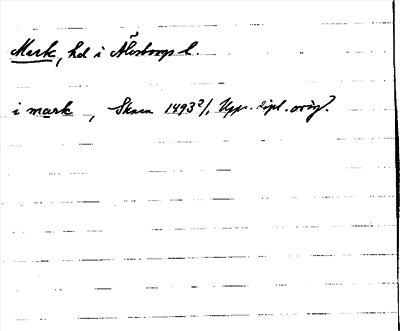 Mark, hd i Älvsborgs l.
i mark, Skara 1493 2/1 Upps. dipl. orig.